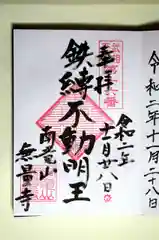 奉拝
武相第十六番
令和二年
十一月廿八日
鉄縛不動明王
南竜山
無量寺
令和二年十一月二十八日